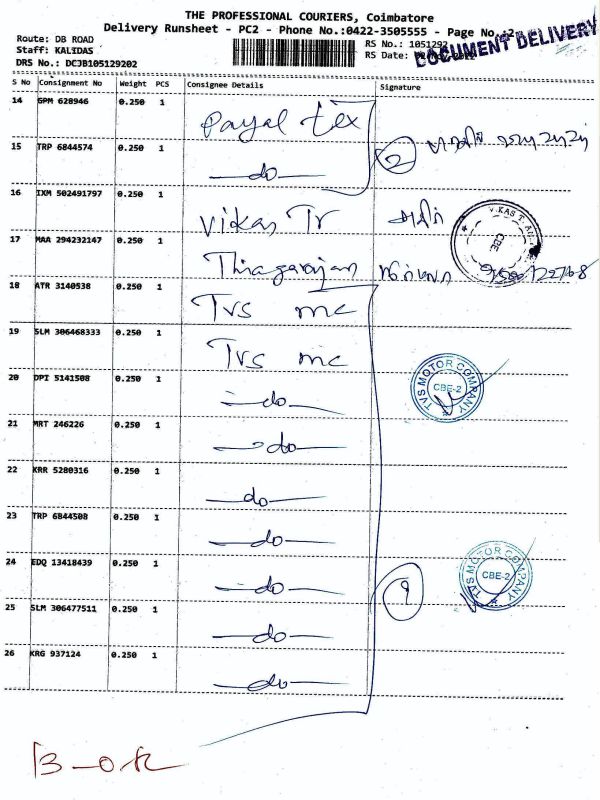 THE PROFESSIONAL COURIERS, Coimbatore
Delivery Runsheet - PC2 - Phone No.:0422-3505555 - Page No.:2
DOCUMENT DELIVERY
Route: DB ROAD
Staff: KALIDAS
DRS No.: DCJB105129202
RS No.: 1051292
RS Date:
S No Consignment No Weight PCS Consignee Details Signature
14 GPM 628946 0.250 1 Payal tex
15 TRP 6844574 0.250 1 do
2
16 IXM 502491797 0.250 1 Vikas Tr
17 MAA 294232147 0.250 1 Thiagarajan
CBE
18 ATR 3140538 0.250 1 TVS mc
19 SLM 306468333 0.250 1 TVS mc
20 DPI 5141508 0.250 1 do
TVS MOTOR COMPANY CBE-2
21 MRT 246226 0.250 1 do
22 KRR 5280316 0.250 1 do
23 TRP 6844508 0.250 1 do
24 EDQ 13418439 0.250 1 do
TVS MOTOR COMPANY CBE-2
9
25 SLM 306477511 0.250 1 do
26 KRG 937124 0.250 1 do